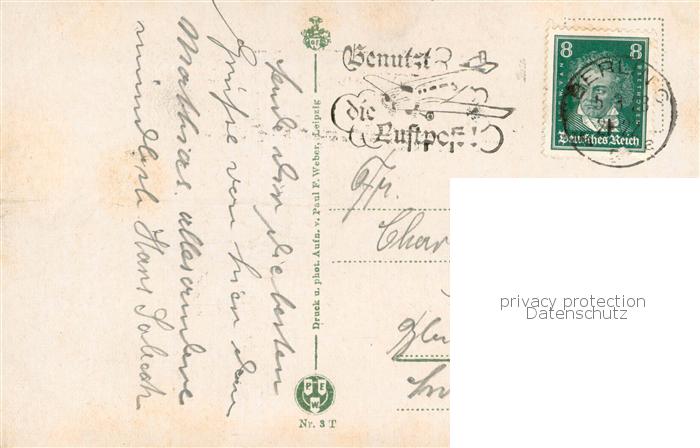 Sende dir die besten
Grüße von hier dein
Mathias. alles andere
mündlich Hans
Druck u. phot. Aufn. v. Paul F. Weber, Leipzig
P F W
Nr. 3 T
Benutzt
die
Luftpost!
8 8
Deutsches Reich
BERLIN
Fr.
Char
privacy protection
Datenschutz